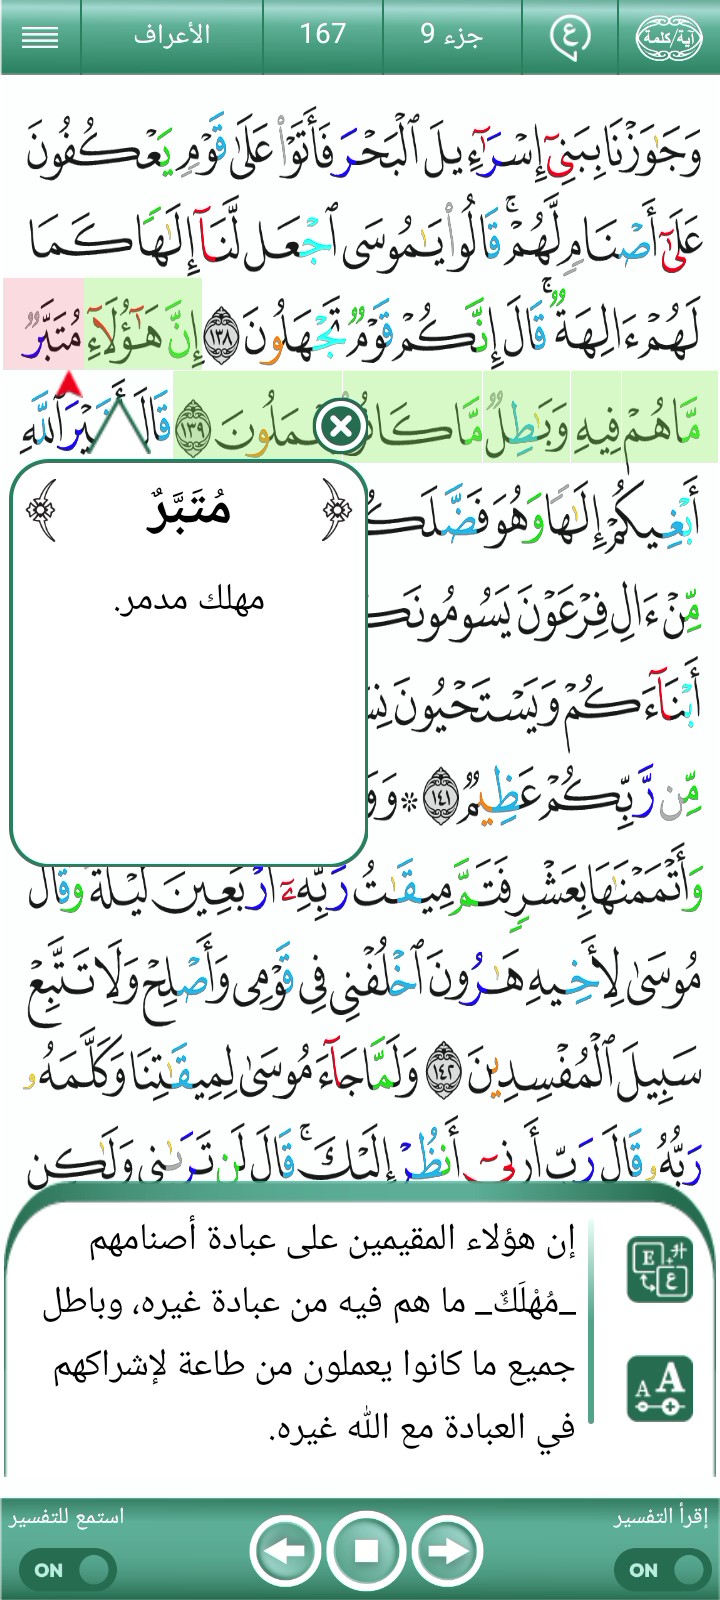 آية/كلمة
ع
جزء 9
167
الأعراف
وَجَٰوَزْنَا بِبَنِىٓ إِسْرَٰٓءِيلَ ٱلْبَحْرَ فَأَتَوْا۟ عَلَىٰ قَوْمٍ يَعْكُفُونَ
عَلَىٰٓ أَصْنَامٍ لَّهُمْ ۚ قَالُوا۟ يَٰمُوسَى ٱجْعَل لَّنَآ إِلَٰهًا كَمَا
لَهُمْ ءَالِهَةٌ ۚ قَالَ إِنَّكُمْ قَوْمٌ تَجْهَلُونَ ١٣٨ إِنَّ هَٰٓؤُلَآءِ مُتَبَّرٌ
مَّا هُمْ فِيهِ وَبَٰطِلٌ مَّا كَانُوا۟ يَعْمَلُونَ ١٣٩ قَالَ أَغَيْرَ ٱللَّهِ
أَبْغِيكُمْ إِلَٰهًا وَهُوَ فَضَّلَكُ
مِّنْ ءَالِ فِرْعَوْنَ يَسُومُونَكُ
أَبْنَآءَكُمْ وَيَسْتَحْيُونَ نِسَ
مِّن رَّبِّكُمْ عَظِيمٌ ١٤١ ۞ وَوَ
وَأَتْمَمْنَٰهَا بِعَشْرٍ فَتَمَّ مِيقَٰتُ رَبِّهِۦٓ أَرْبَعِينَ لَيْلَةً وَقَالَ
مُوسَىٰ لِأَخِيهِ هَٰرُونَ ٱخْلُفْنِى فِى قَوْمِى وَأَصْلِحْ وَلَا تَتَّبِعْ
سَبِيلَ ٱلْمُفْسِدِينَ ١٤٢ وَلَمَّا جَآءَ مُوسَىٰ لِمِيقَٰتِنَا وَكَلَّمَهُۥ
رَبُّهُۥ قَالَ رَبِّ أَرِنِىٓ أَنظُرْ إِلَيْكَ ۚ قَالَ لَن تَرَىٰنِى وَلَٰكِنِ
مُتَبَّرٌ
مهلك مدمر.
إن هؤلاء المقيمين على عبادة أصنامهم
_مُهْلَكٌ_ ما هم فيه من عبادة غيره، وباطل
جميع ما كانوا يعملون من طاعة لإشراكهم
في العبادة مع الله غيره.
إقرأ التفسير
استمع للتفسير
ON
ON